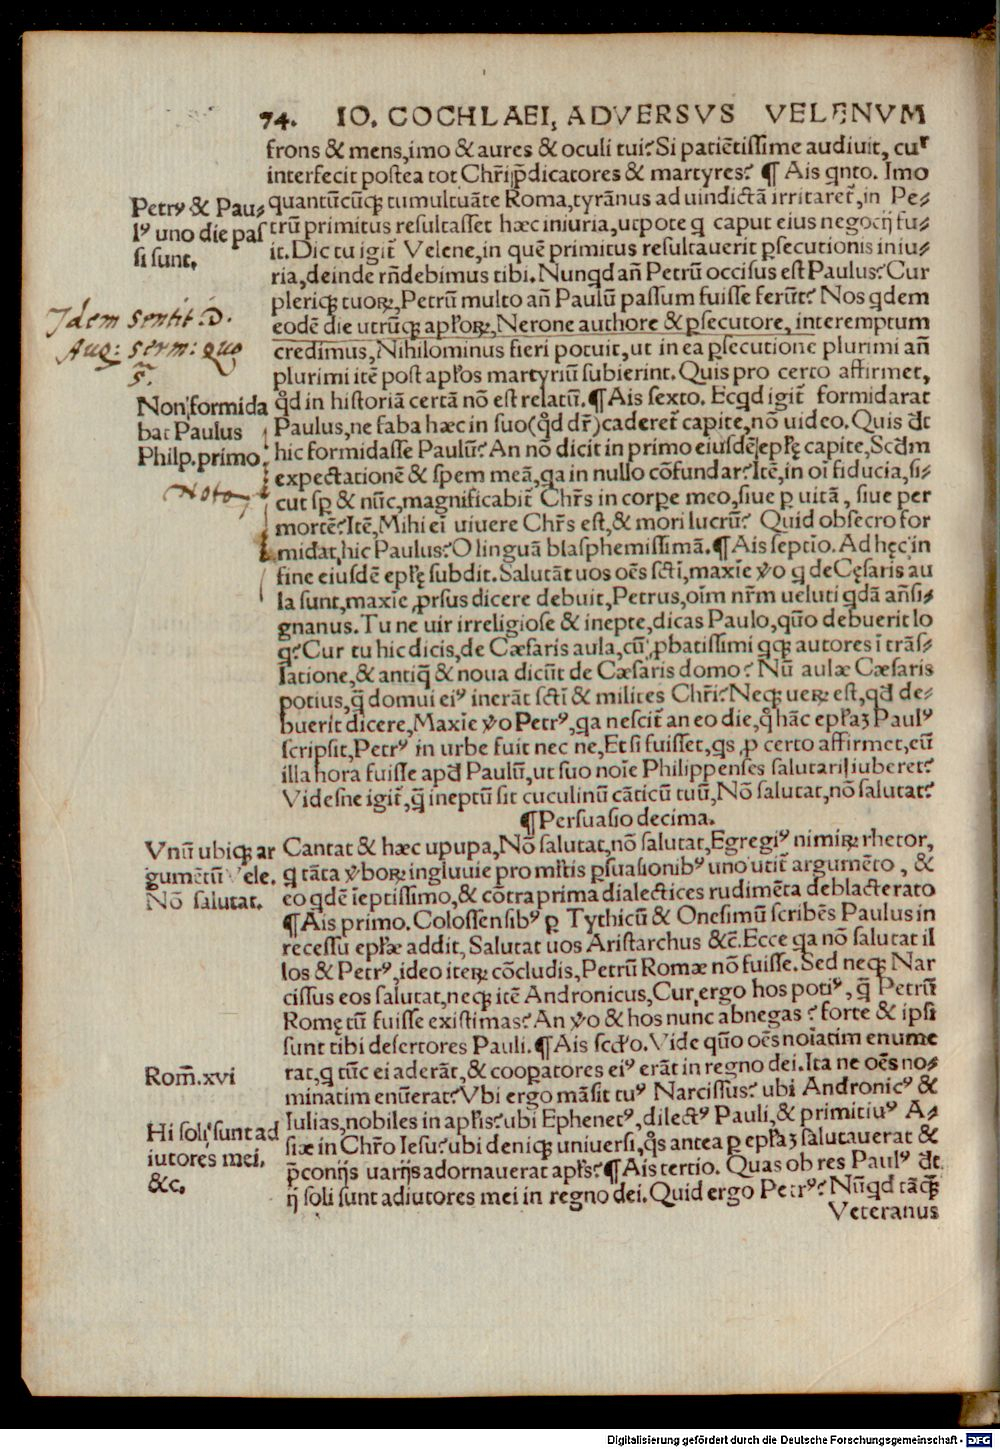 74. IO. COCHLAEI, ADVERSVS VELENVM
frons & mens, imo & aures & oculi tui? Si patiẽtissime audiuit, cuʳ
interfecit postea tot Chr̃i p̃dicatores & martyres? ¶ Ais qnto. Imo
quantũcũqꝫ tumultuãte Roma, tyrãnus ad uindictã irritaret̃, in Pe⸗
trũ primitus resultasset hæc iniuria, utpote q caput eius negocij fu⸗
it. Dic tu igit̃ Velene, in quẽ primitus resultauerit ꝑsecutionis iniu⸗
ria, deinde rñdebimus tibi. Nunqd añ Petrũ occisus est Paulus? Cur
pleriqꝫ tuoꝝ, Petrũ multo añ Paulũ passum fuisse ferũt? Nos qdem
eodẽ die utrũqꝫ apl̃oꝝ, Nerone authore & ꝑsecutore, interemptum
credimus, Nihilominus fieri potuit, ut in ea ꝑsecutione plurimi añ
plurimi itẽ post apl̃os martyriũ subierint. Quis pro certo affirmet,
qđ in historiã certã nõ est relatũ. ¶ Ais sexto. Ecqd igit̃ formidarat
Paulus, ne faba hæc in suo (qđ dr̃) caderet̃ capite, nõ uideo. Quis đt
hic formidasse Paulũ? An nõ dicit in primo eiusdẽ epl̃ę capite, Scđm
expectationẽ & spem meã, qa in nullo cõfundar? Itẽ, in oĩ fiducia, si⸗
cut sꝑ & nũc, magnificabit̃ Chr̃s in corꝑe meo, siue ꝑ uitã, siue per
mortẽ? Itẽ, Mihi eĩ uiuere Chr̃s est, & mori lucrũ? Quid obsecro for
midat, hic Paulus? O linguã blasphemissimã. ¶ Ais septĩo. Ad hęc in
fine eiusdẽ epl̃ę subdit. Salutãt uos oẽs scti̅, maxĩe ꝟo q de Cęsaris au
la sunt, maxĩe ꝓrsus dicere debuit, Petrus, oĩm nr̃m ueluti qdã añsi⸗
gnanus. Tu ne uir irreligiose & inepte, dicas Paulo, quõ debuerit lo
q? Cur tu hic dicis, de Cæsaris aula, cũ ꝓbatissimi qqꝫ autores ĩ trãs⸗
latione, & antiq̃ & noua dicũt de Cæsaris domo? Nũ aulæ Cæsaris
potius, q̃ domui eiꝰ inerãt scti̅ & milites Chr̃i? Neqꝫ ueꝝ est, qđ de⸗
buerit dicere, Maxĩe ꝟo Petrꝰ, qa nescit̃ an eo die, q̊ hãc epl̃aꝫ Paulꝰ
scripsit, Petrꝰ in urbe fuit nec ne, Et si fuisset, qs ꝓ certo affirmet, eũ
illa hora fuisse apđ Paulũ, ut suo noĩe Philippenses salutari iuberet?
Videsne igit̃, q̃ ineptũ sit cuculinũ cãticũ tuũ, Nõ salutat, nõ salutat?
¶ Persuasio decima.
Cantat & hæc upupa, Nõ salutat, nõ salutat, Egregiꝰ nimiꝝ rhetor,
q tãta ꝟboꝝ ingluuie pro ml̃tis ꝑsuasionibꝰ uno utit̃ argumẽto, &
eo qdẽ ĩeptissimo, & cõtra prima dialectices rudimẽta deblacterato
¶ Ais primo. Colossensibꝰ ꝑ Tythicũ & Onesimũ scribẽs Paulus in
recessu epl̃æ addit, Salutat uos Aristarchus &c̃. Ecce qa nõ salutat il
los & Petrꝰ, ideo iteꝝ cõcludis, Petrũ Romæ nõ fuisse. Sed neqꝫ Nar
cissus eos salutat, neqꝫ itẽ Andronicus, Cur ergo hos potiꝰ, q̃ Petrũ
Romę tũ fuisse existimas? An ꝟo & hos nunc abnegas? forte & ipsi
sunt tibi desertores Pauli. ¶ Ais scđo. Vide quõ oẽs noĩatim enume
rat, q tũc ei aderãt, & cooꝑatores eiꝰ erãt in regno dei. Ita ne oẽs no⸗
minatim enũerat? Vbi ergo mãsit tuꝰ Narcissus? ubi Andronicꝰ &
Iulias, nobiles in apl̃is? ubi Ephenetꝰ, dilectꝰ Pauli, & primitiuꝰ A⸗
siæ in Chr̃o Iesu? ubi deniqꝫ uniuersi, q̊s antea ꝑ epl̃aꝫ salutauerat &
p̃conijs uarijs adornauerat apl̃s? ¶ Ais tertio. Quas ob res Paulꝰ đt
ij soli sunt adiutores mei in regno dei. Quid ergo Petrꝰ? Nũqd tãqꝫ̃
Veteranus
Petrꝰ & Pau⸗
lꝰ uno die pas
si sunt.
Idem sentit .D.
Aug: serm: quo
s̃.
Non formida
bat Paulus
Philp. primo.
Nota
Vnũ ubiqꝫ ar
gumẽtũ Vele.
Nõ salutat.
Rom̃. xvi
Hi soli sunt ad
iutores mei,
&c.
Digitalisierung gefördert durch die Deutsche Forschungsgemeinschaft - DFG